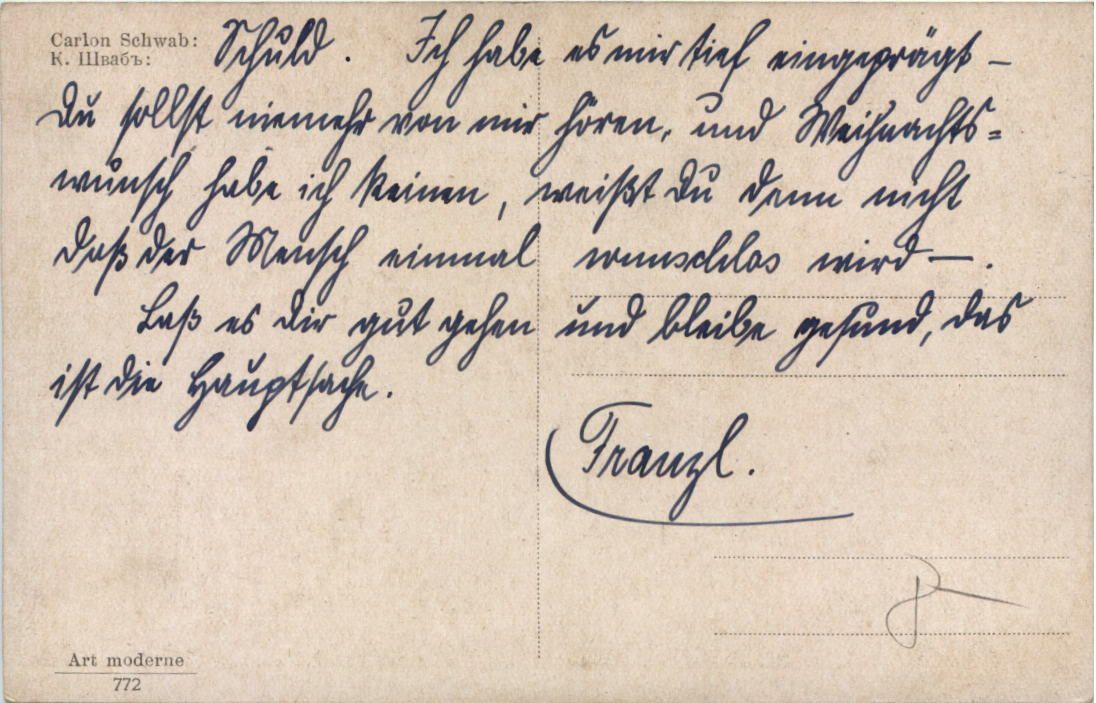 Carlon Schwab:
К. Швабъ:
Schuld. Ich habe es mir tief eingeprägt –
Du sollst niemehr von mir hören, und Weihnachts=
wunsch habe ich keinen, weißt Du denn nicht
daß der Mensch einmal wunschlos wird –.
Laß es Dir gut gehen und bleibe gesund, das
ist die Hauptsache.
Franzl.
Art moderne
772